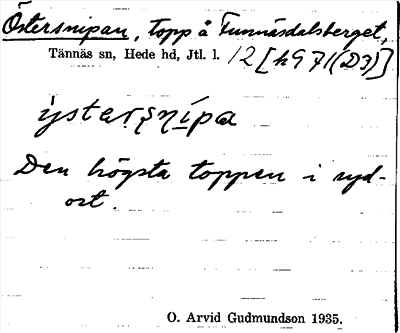 Östersnipan, topp å Funnäsdalsberget,
Tännäs sn, Hede hd, Jtl. l. 12 [h971(D3)]
ystaṛşṇípa
Den högsta toppen i syd-
ost.
O. Arvid Gudmundson 1935.